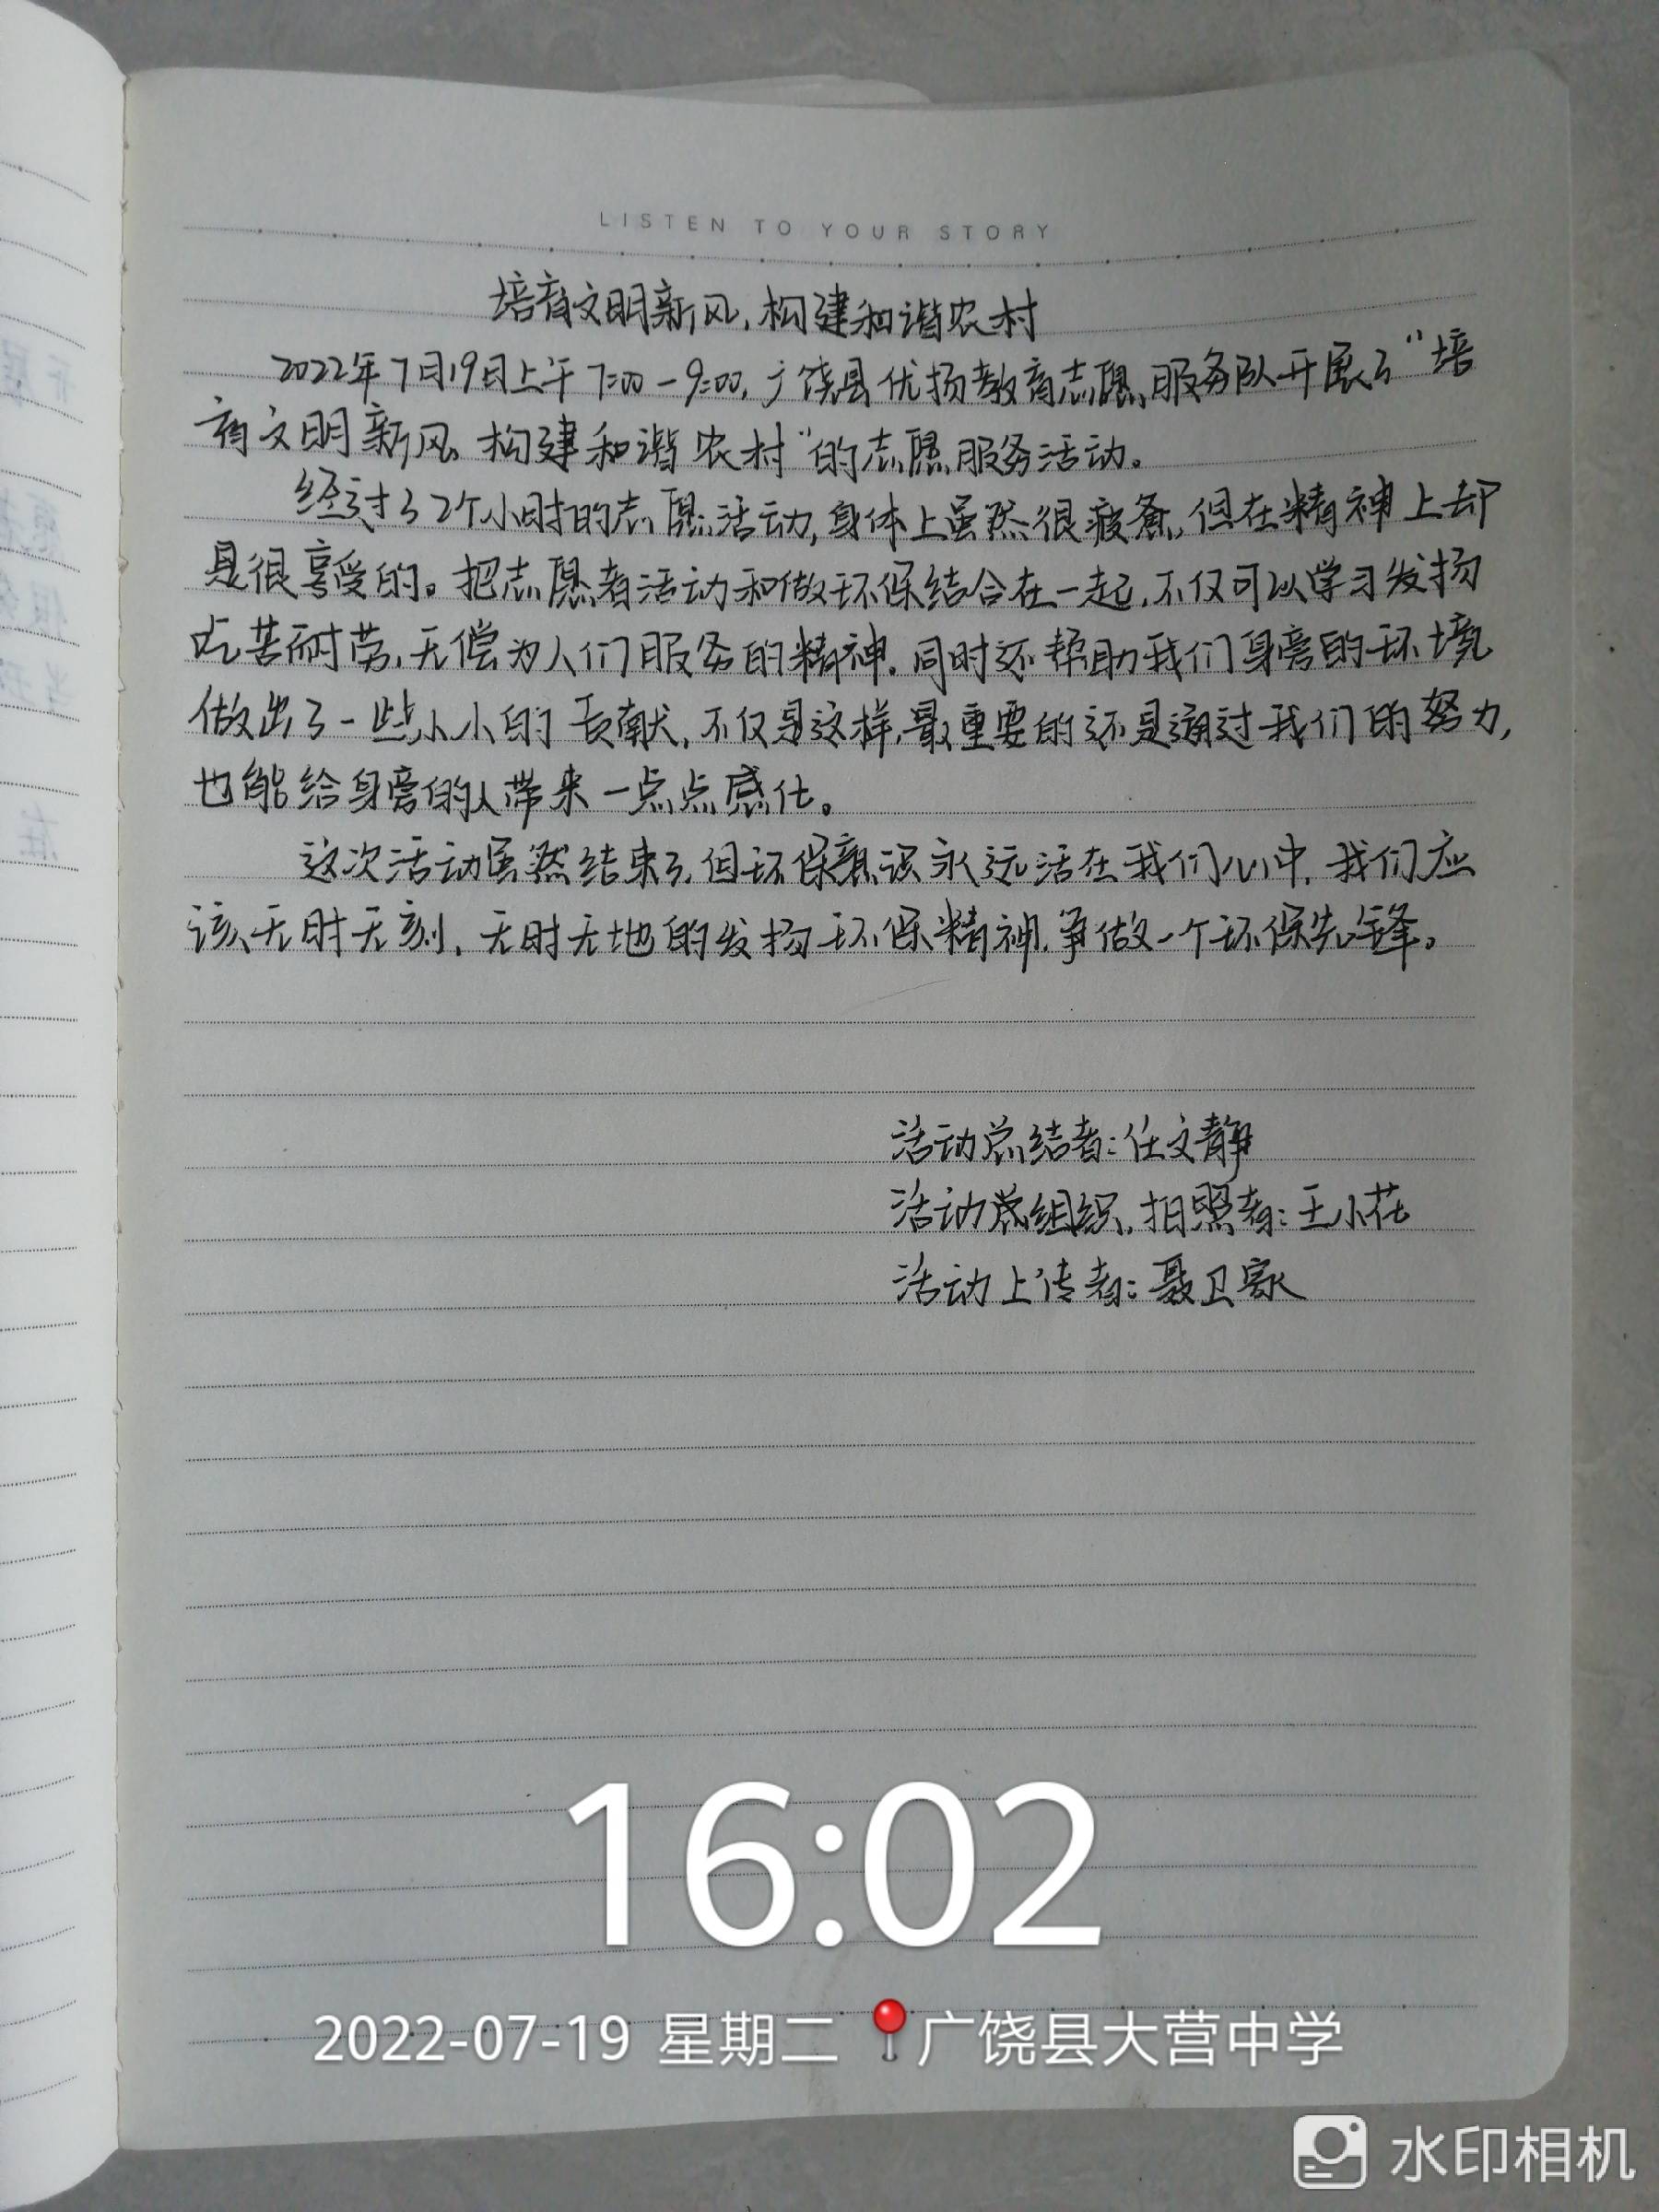 LISTEN TO YOUR STORY
培育文明新风,构建和谐农村
2022年7月19日上午7:00-9:00,广饶县优扬教育志愿服务队开展了“培
育文明新风、构建和谐农村”的志愿服务活动。
经过了2个小时的志愿活动,身体上虽然很疲惫,但在精神上却
是很享受的。把志愿者活动和做环保结合在一起,不仅可以学习发扬
吃苦耐劳,无偿为人们服务的精神,同时还帮助我们身旁的环境
做出了一些小小的贡献,不仅是这样,最重要的还是通过我们的努力,
也能给身旁的人带来一点点感化。
这次活动虽然结束了,但环保意识永远活在我们心中,我们应
该无时无刻,无时无地的发扬环保精神,争做一个环保先锋。
活动总结者:任文静
活动组织、拍照者:王小花
活动上传者:聂卫家
16:02
2022-07-19 星期二 广饶县大营中学
水印相机